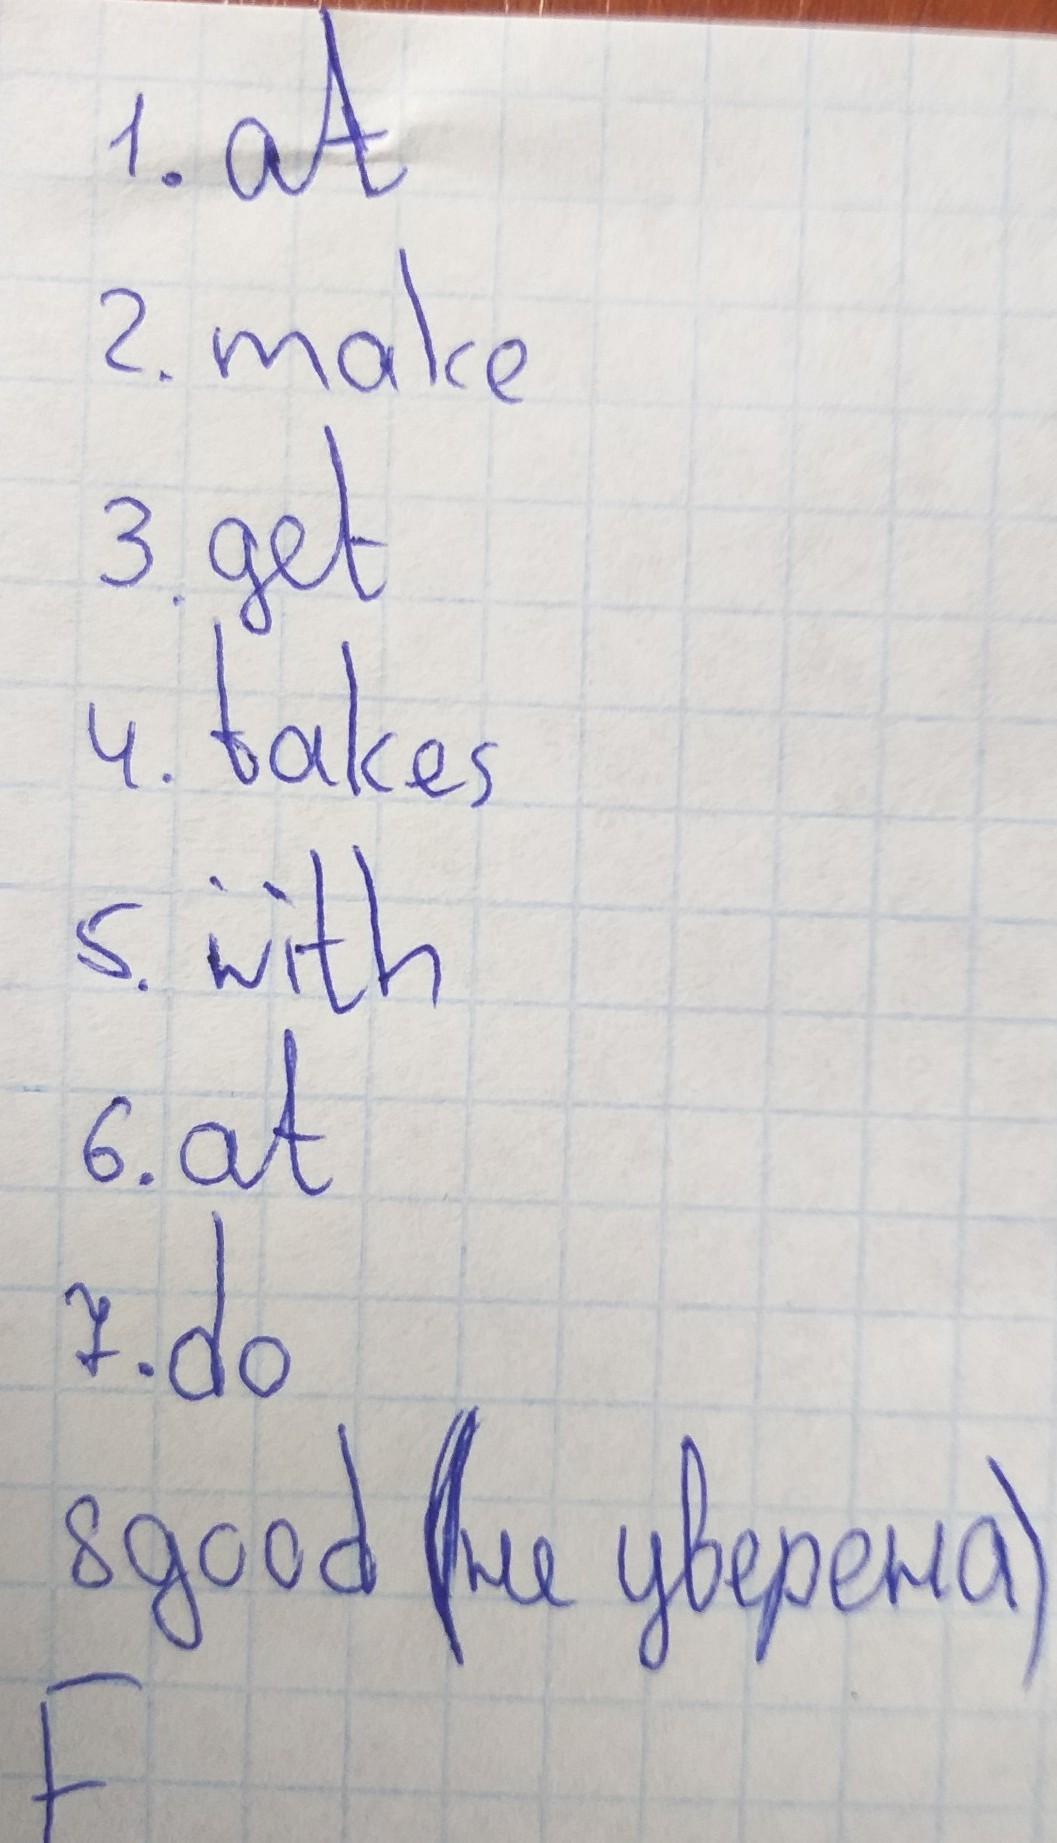 1. at
2. make
3. get
4. takes
5. with
6. at
7. do
8 good (не уверена)
F